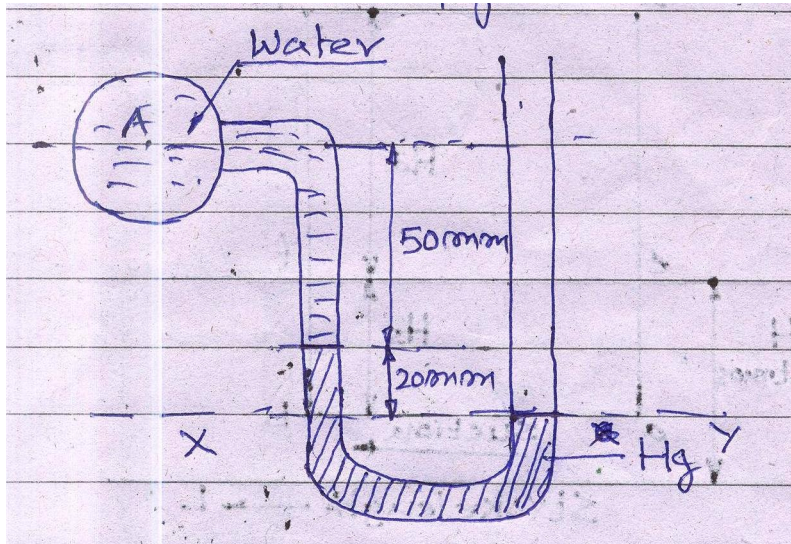 Water
A
50mm
20mm
X
Y
Hg